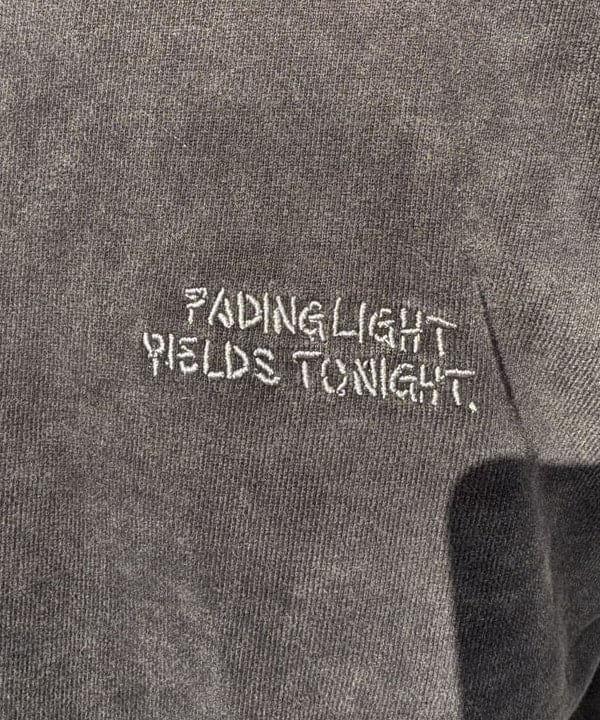 FADING LIGHT
YIELDS TONIGHT.